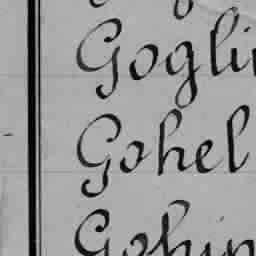 Gogli
Gohel
Gohin